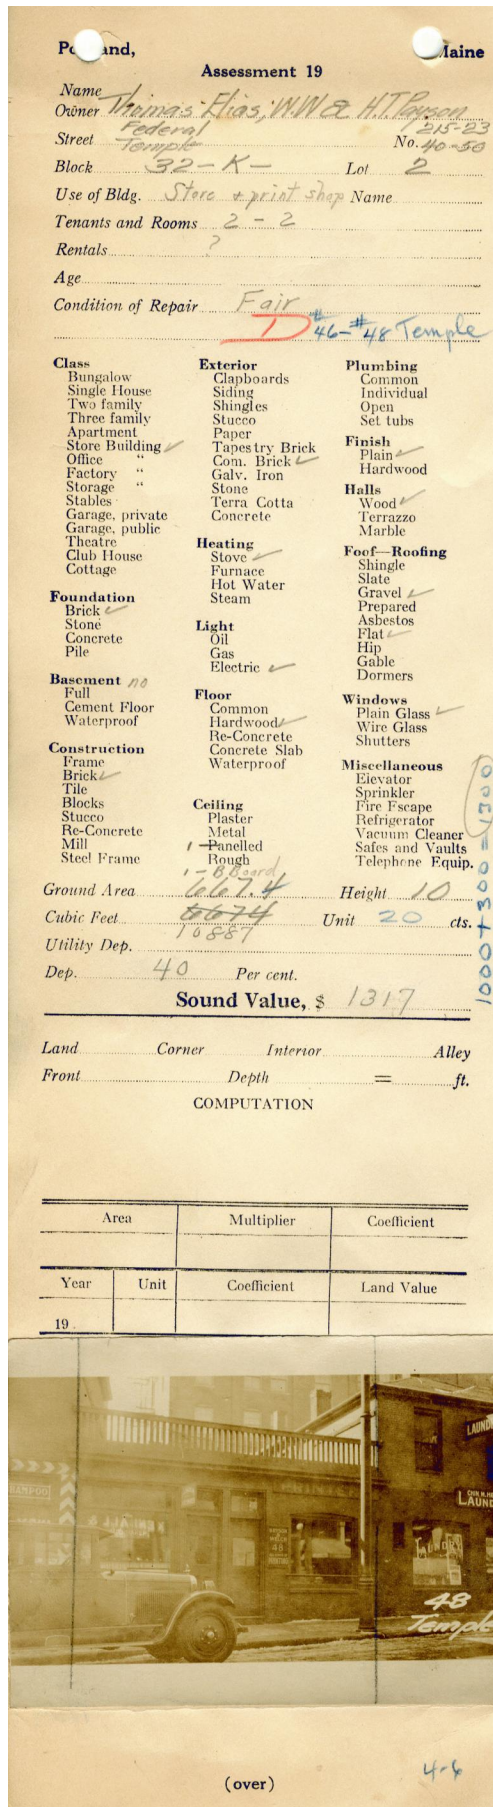 Portland, Maine
Assessment 19
Name
Owner Thomas, Elias; W.W & H.T Payson
Federal 215-23
Street Temple No. 40-50
Block 32-K- Lot 2
Use of Bldg. Store + print shop Name
Tenants and Rooms 2-2
Rentals ?
Age
Condition of Repair Fair
D #46-#48 Temple
Class
Bungalow
Single House
Two family
Three family
Apartment
Store Building ✓
Office "
Factory "
Storage "
Stables
Garage, private
Garage, public
Theatre
Club House
Cottage
Foundation
Brick ✓
Stone
Concrete
Pile
Basement no
Full
Cement Floor
Waterproof
Construction
Frame
Brick ✓
Tile
Blocks
Stucco
Re-Concrete
Mill
Steel Frame
Exterior
Clapboards
Siding
Shingles
Stucco
Paper
Tapestry Brick
Com. Brick ✓
Galv. Iron
Stone
Terra Cotta
Concrete
Heating
Stove ✓
Furnace
Hot Water
Steam
Light
Oil
Gas
Electric ✓
Floor
Common
Hardwood ✓
Re-Concrete
Concrete Slab
Waterproof
Ceiling
Plaster
Metal
1 - Panelled
Rough
1 - B Board
Plumbing
Common
Individual
Open
Set tubs
Finish
Plain ✓
Hardwood
Halls
Wood ✓
Terrazzo
Marble
Foof—Roofing
Shingle
Slate
Gravel ✓
Prepared
Asbestos
Flat ✓
Hip
Gable
Dormers
Windows
Plain Glass ✓
Wire Glass
Shutters
Miscellaneous
Elevator
Sprinkler
Fire Escape
Refrigerator
Vacuum Cleaner
Safes and Vaults
Telephone Equip.
1000+300=1300
Ground Area 667.4 Height 10
Cubic Feet 6674 Unit 20 cts.
10887
Utility Dep.
Dep. 40 Per cent.
Sound Value, $ 1317
Land Corner Interior Alley
Front Depth = ft.
COMPUTATION
Area Multiplier Coefficient
Year Unit Coefficient Land Value
19
SHAMPOO
PRINTER
48
PRINTING
LAUNDRY
LAUND
LAUND
48
Temple
4-6
(over)